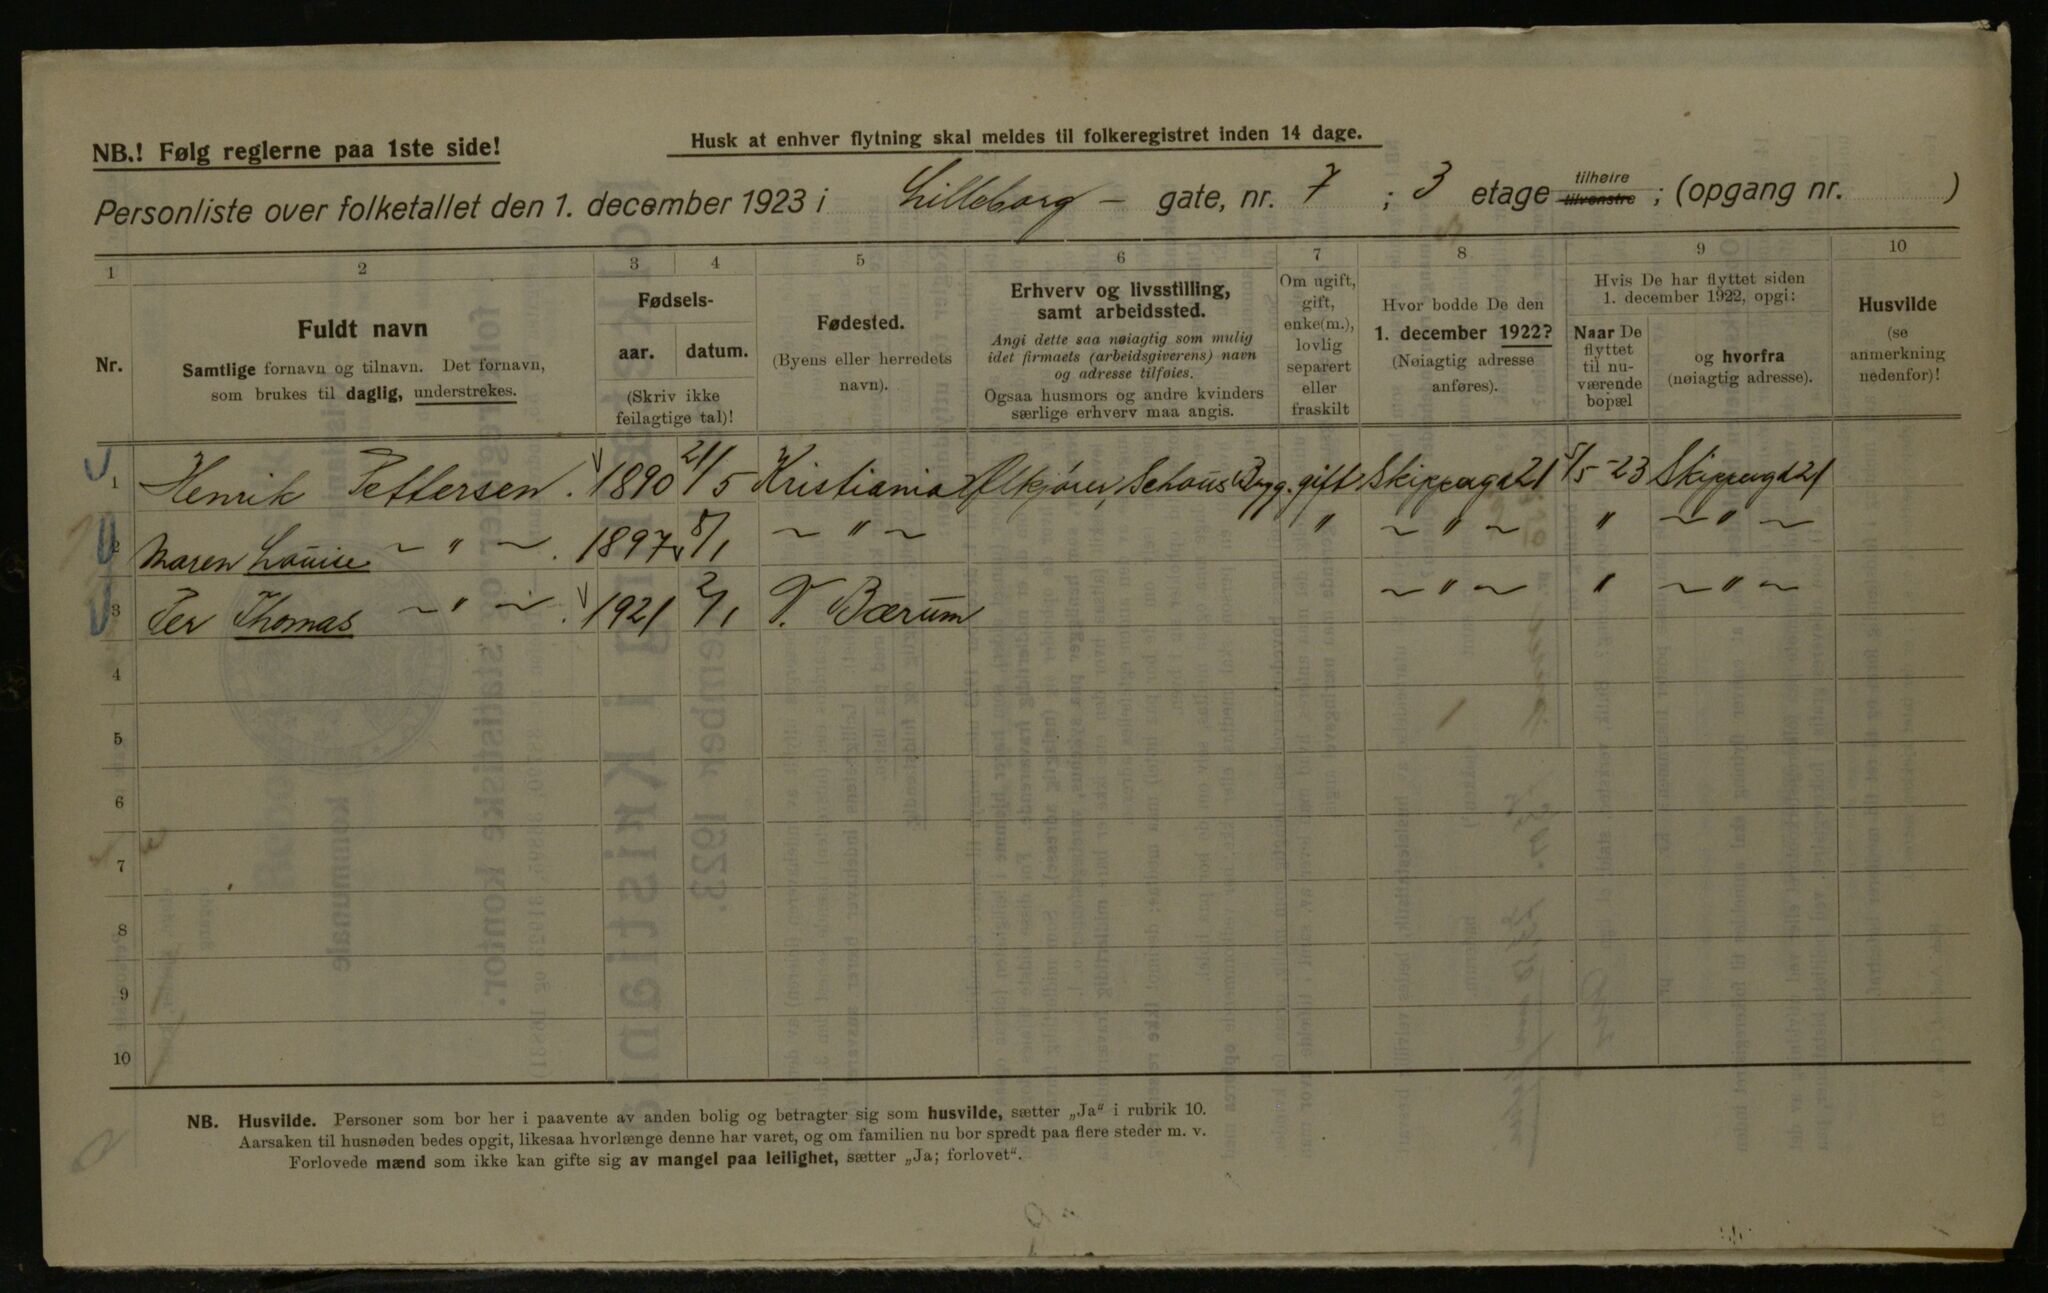 NB.! Følg reglerne paa 1ste side!
Husk at enhver flytning skal meldes til folkeregistret inden 14 dage.
Personliste over folketallet den 1. december 1923 i Lilleborg – gate, nr. 7 ; 3 etage tilhøire tilvenstre ; (opgang nr. )
1 2 3 4 5 6 7 8 9 10
Nr.
Fuldt navn
Samtlige fornavn og tilnavn. Det fornavn,
som brukes til daglig, understrekes.
Fødsels-
aar. datum.
(Skriv ikke
feilagtige tal)!
Fødested.
(Byens eller herredets
navn).
Erhverv og livsstilling,
samt arbeidssted.
Angi dette saa nøiagtig som mulig
idet firmaets (arbeidsgiverens) navn
og adresse tilføies.
Ogsaa husmors og andre kvinders
særlige erhverv maa angis.
Om ugift,
gift,
enke(m.),
lovlig
separert
eller
fraskilt
Hvor bodde De den
1. december 1922?
(Nøiagtig adresse
anføres).
Hvis De har flyttet siden
1. december 1922, opgi:
Naar De
flyttet
til nu-
værende
bopæl
og hvorfra
(nøiagtig adresse).
Husvilde
(se
anmerkning
nedenfor)!
1 Henrik Pettersen. 1890 21/5 Kristiania Ølkjører, Schous Bryg. gift Skippergt 21 5/5 -23 Skippergt 21
2 Maren Louise ~ " ~. 1897 8/1 ~ " ~ " ~ " ~ " ~ " ~
3 Per Thomas ~ " ~. 1921 2/1 V. Bærum ~ " ~ " ~ " ~
4
5
6
7
8
9
10
NB. Husvilde. Personer som bor her i paavente av anden bolig og betragter sig som husvilde, sætter „Ja“ i rubrik 10.
Aarsaken til husnøden bedes opgit, likesaa hvorlænge denne har varet, og om familien nu bor spredt paa flere steder m. v.
Forlovede mænd som ikke kan gifte sig av mangel paa leilighet, sætter „Ja; forlovet“.